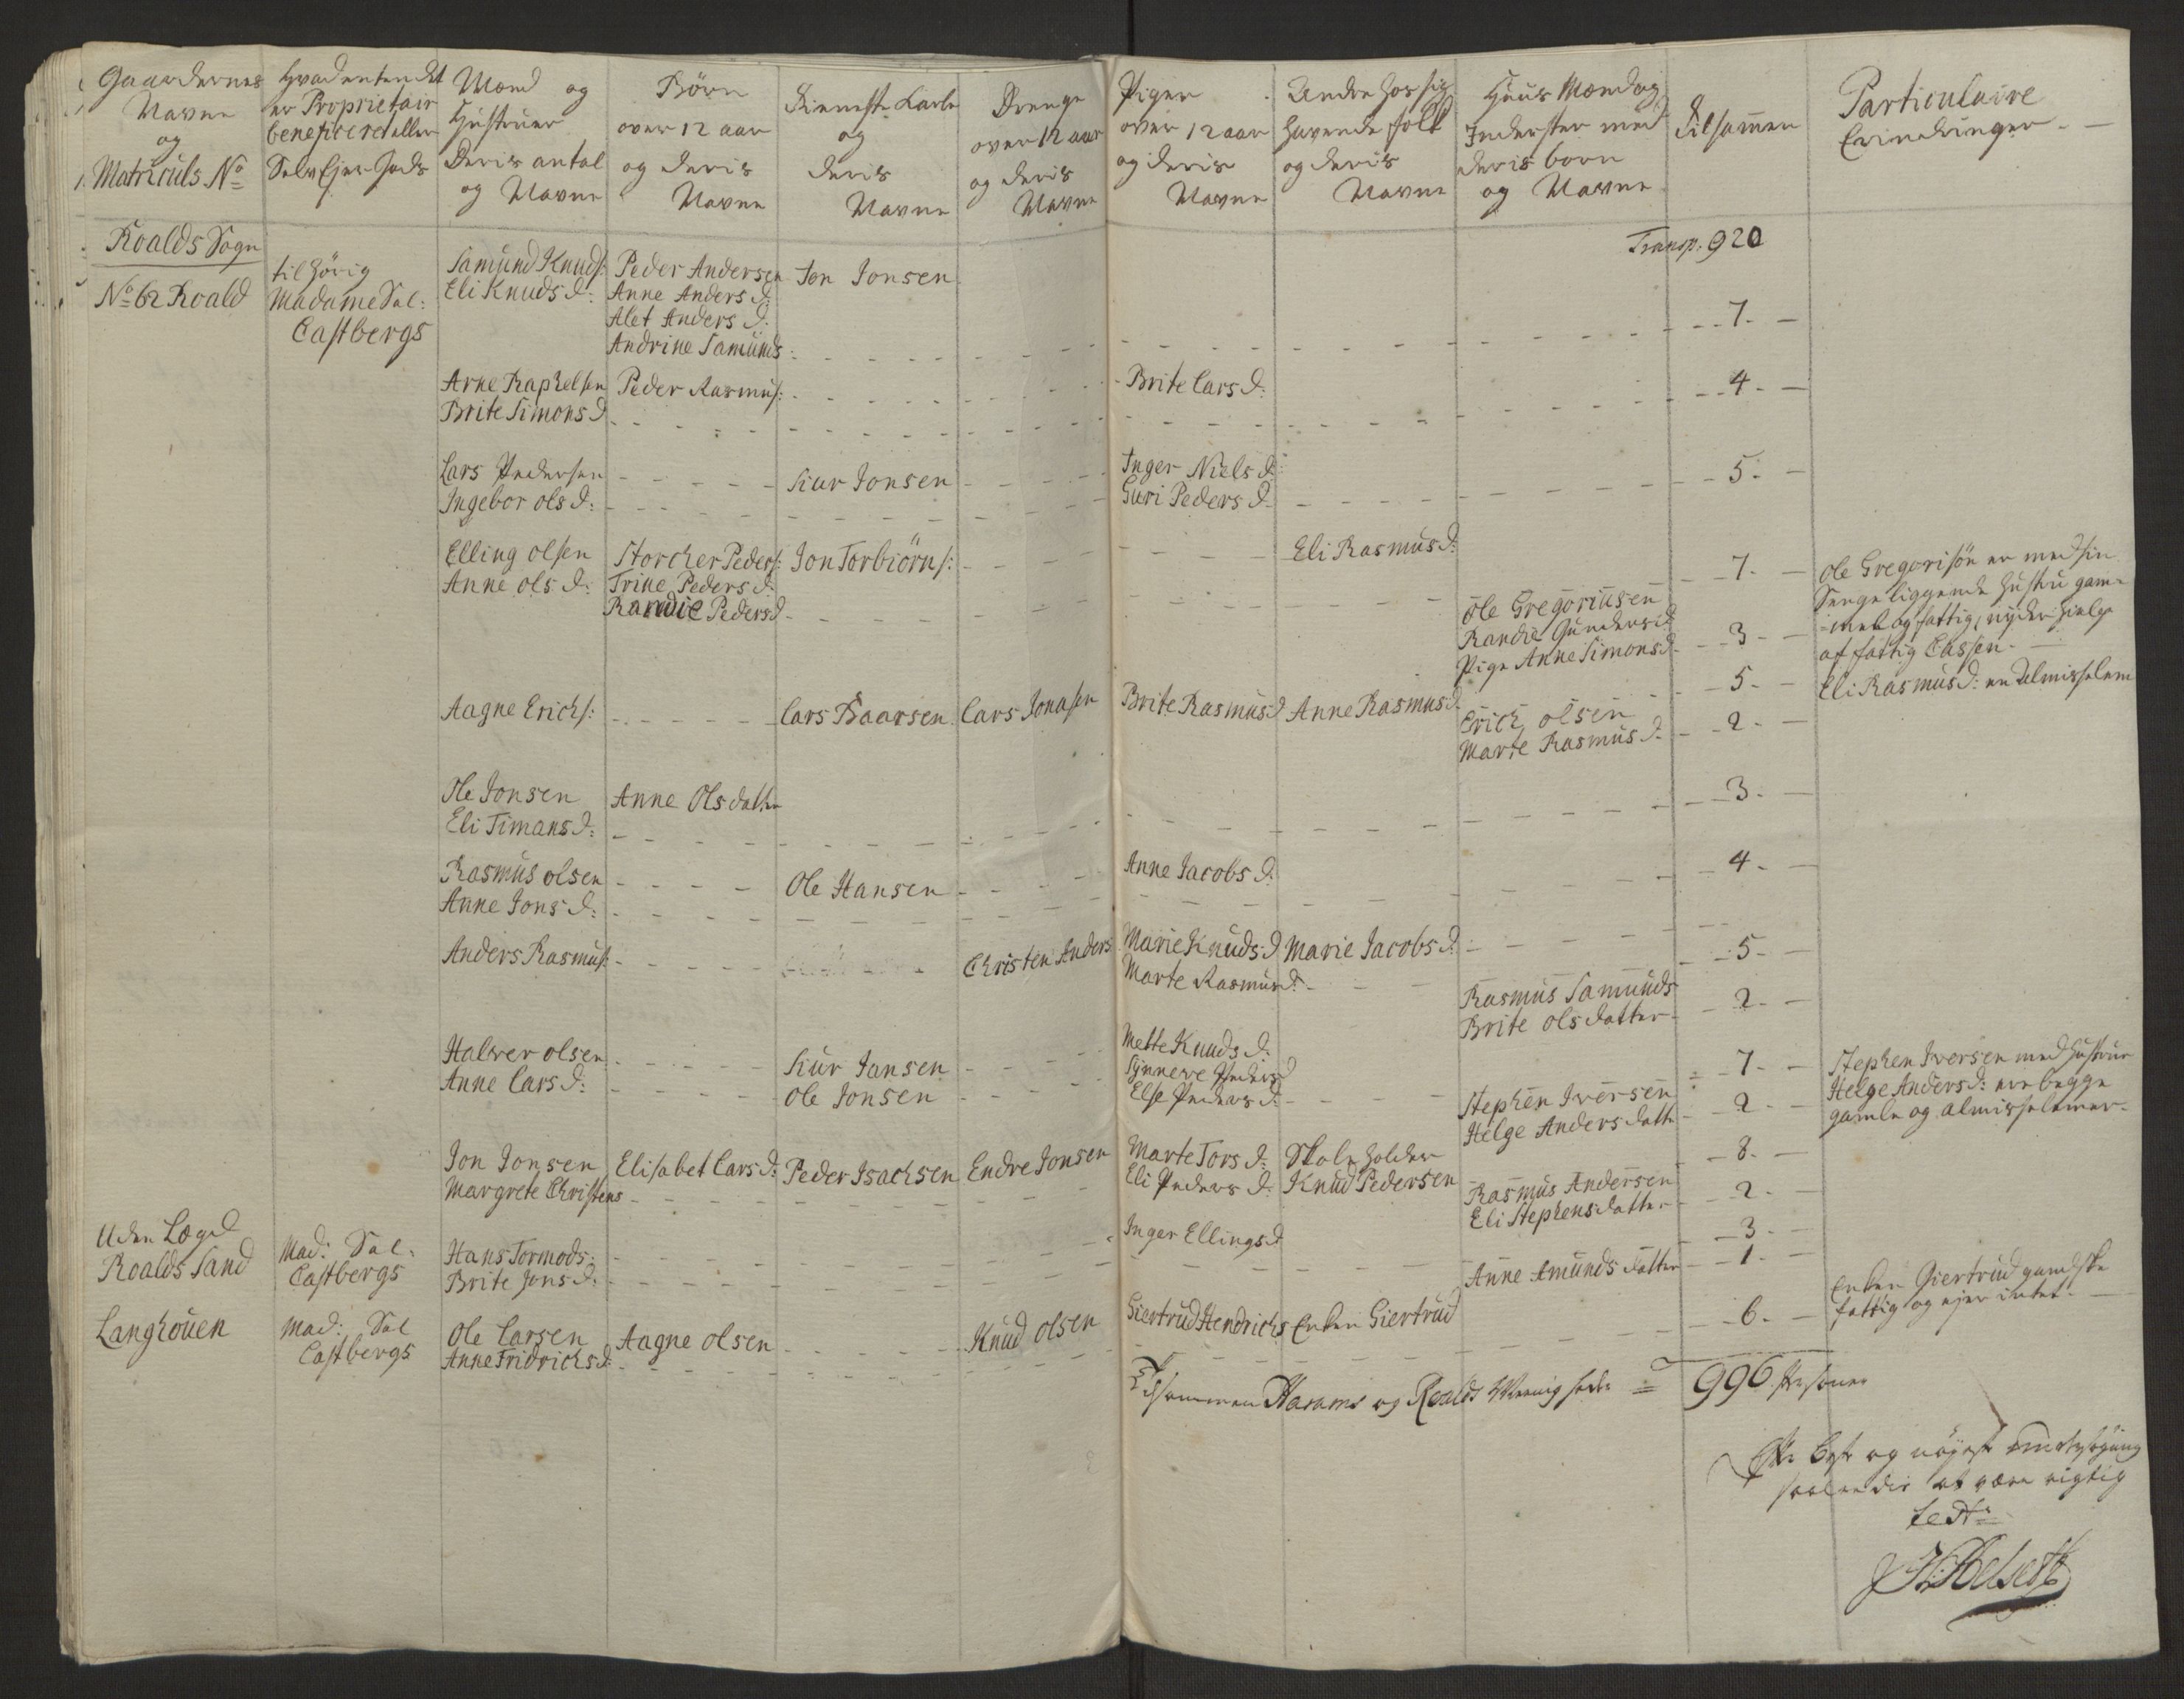 Gaardernes
Navne
og
Matriculs No
Hvad enten det
er Proprietair
beneficeret eller
Selv Ejer Gods
Mænd og
Hustruer
Deris antal
og Navne
Börn
over 12 aar
og deris
Navne
Tieneste Karle
og
deris
Navne
Drenge
over 12 aar
og deris
Navne
Piger
over 12 aar
og deris
Navne
Andre hos sig
havende folk
og deris
Navne
Huus Mænd og
Inderster med
deris born
og Navne
Tilsammen
Particulaire
Erindringer
Roalds Sogn
Transp. 920
No 62 Roald
tilhörig
Madame Sal:
Castbergs
Samund Knuds:
Eli Knuds d:
Peder Andersen
Anne Anders d:
Alet Anders d:
Andrine Samunds
Jon Jonsen
7
Arne Raphelsen
Brite Simons d
Peder Rasmus:
Brite Lars d:
4
Lars Pedersen
Ingebor ols d:
Siur Jonsen
Inger Niels d:
Guri Peders d
5
Elling olsen
Anne ols d:
Storcker Peders:
Trine Peders d:
Randie Peders d
Jon Torbiörns:
Eli Rasmus d:
7
Ole Gregoriusen
Randie Gunders d
Pige Anne Simons d
3
Ole Gregorisön er med sin
Senge liggende Hustru gam=
=mel og fattig, nyder hielp
af fattig Cassen.
Aagne Erichs:
Lars Baarsen
Lars Jonasen
Brite Rasmus d
Anne Rasmus d
5
Eli Rasmus d: en Almisselem
Erich olsen
Marte Rasmus d:
2
Ole Jonsen
Eli Timans d:
Anne Ols datter
3
Rasmus olsen
Anne Jons d:
Ole Hansen
Anne Jacobs d:
4
Anders Rasmus:
Christen Anders
Marie Knuds d
Marte Rasmus d:
Marie Jacobs d:
5
Rasmus Samunds
Brite ols datter
2
Halver olsen
Anne Lars d:
Siur Jansen
Ole Jonsen
Mette Knuds d:
Synneve Peders d
Else Peders d:
7
Stephen Iversen
Helge Anders datt
2
Stephen Iversen med hustrue
Helge Anders d: ere begge
gamle og almisselemer
Jon Jonsen
Margrete Christens
Elisabet Lars d:
Peder Isachsen
Endre Jonsen
Marte Tors d:
Eli Peders d:
Skoleholder
Knud Pedersen
8
Rasmus Andersen
Eli Stephens datter
2
Uden Lægd
Roalds Sand
Mad: Sal:
Castbergs
Hans Tormods:
Brite Jons d:
Inger Ellings d
3
Anne Amunds datter
1
Langhouen
Mad: Sal
Castbergs
Ole Larsen
Anne Fridrichs d:
Aagne olsen
Knud olsen
Giertrud Hendrichs
Enken Giertrud
6
Enken Giertrud gandske
fattig og ejer intet
Tilsammen Harams og Roalds Menigheder = 996 Personer
at være rigtig